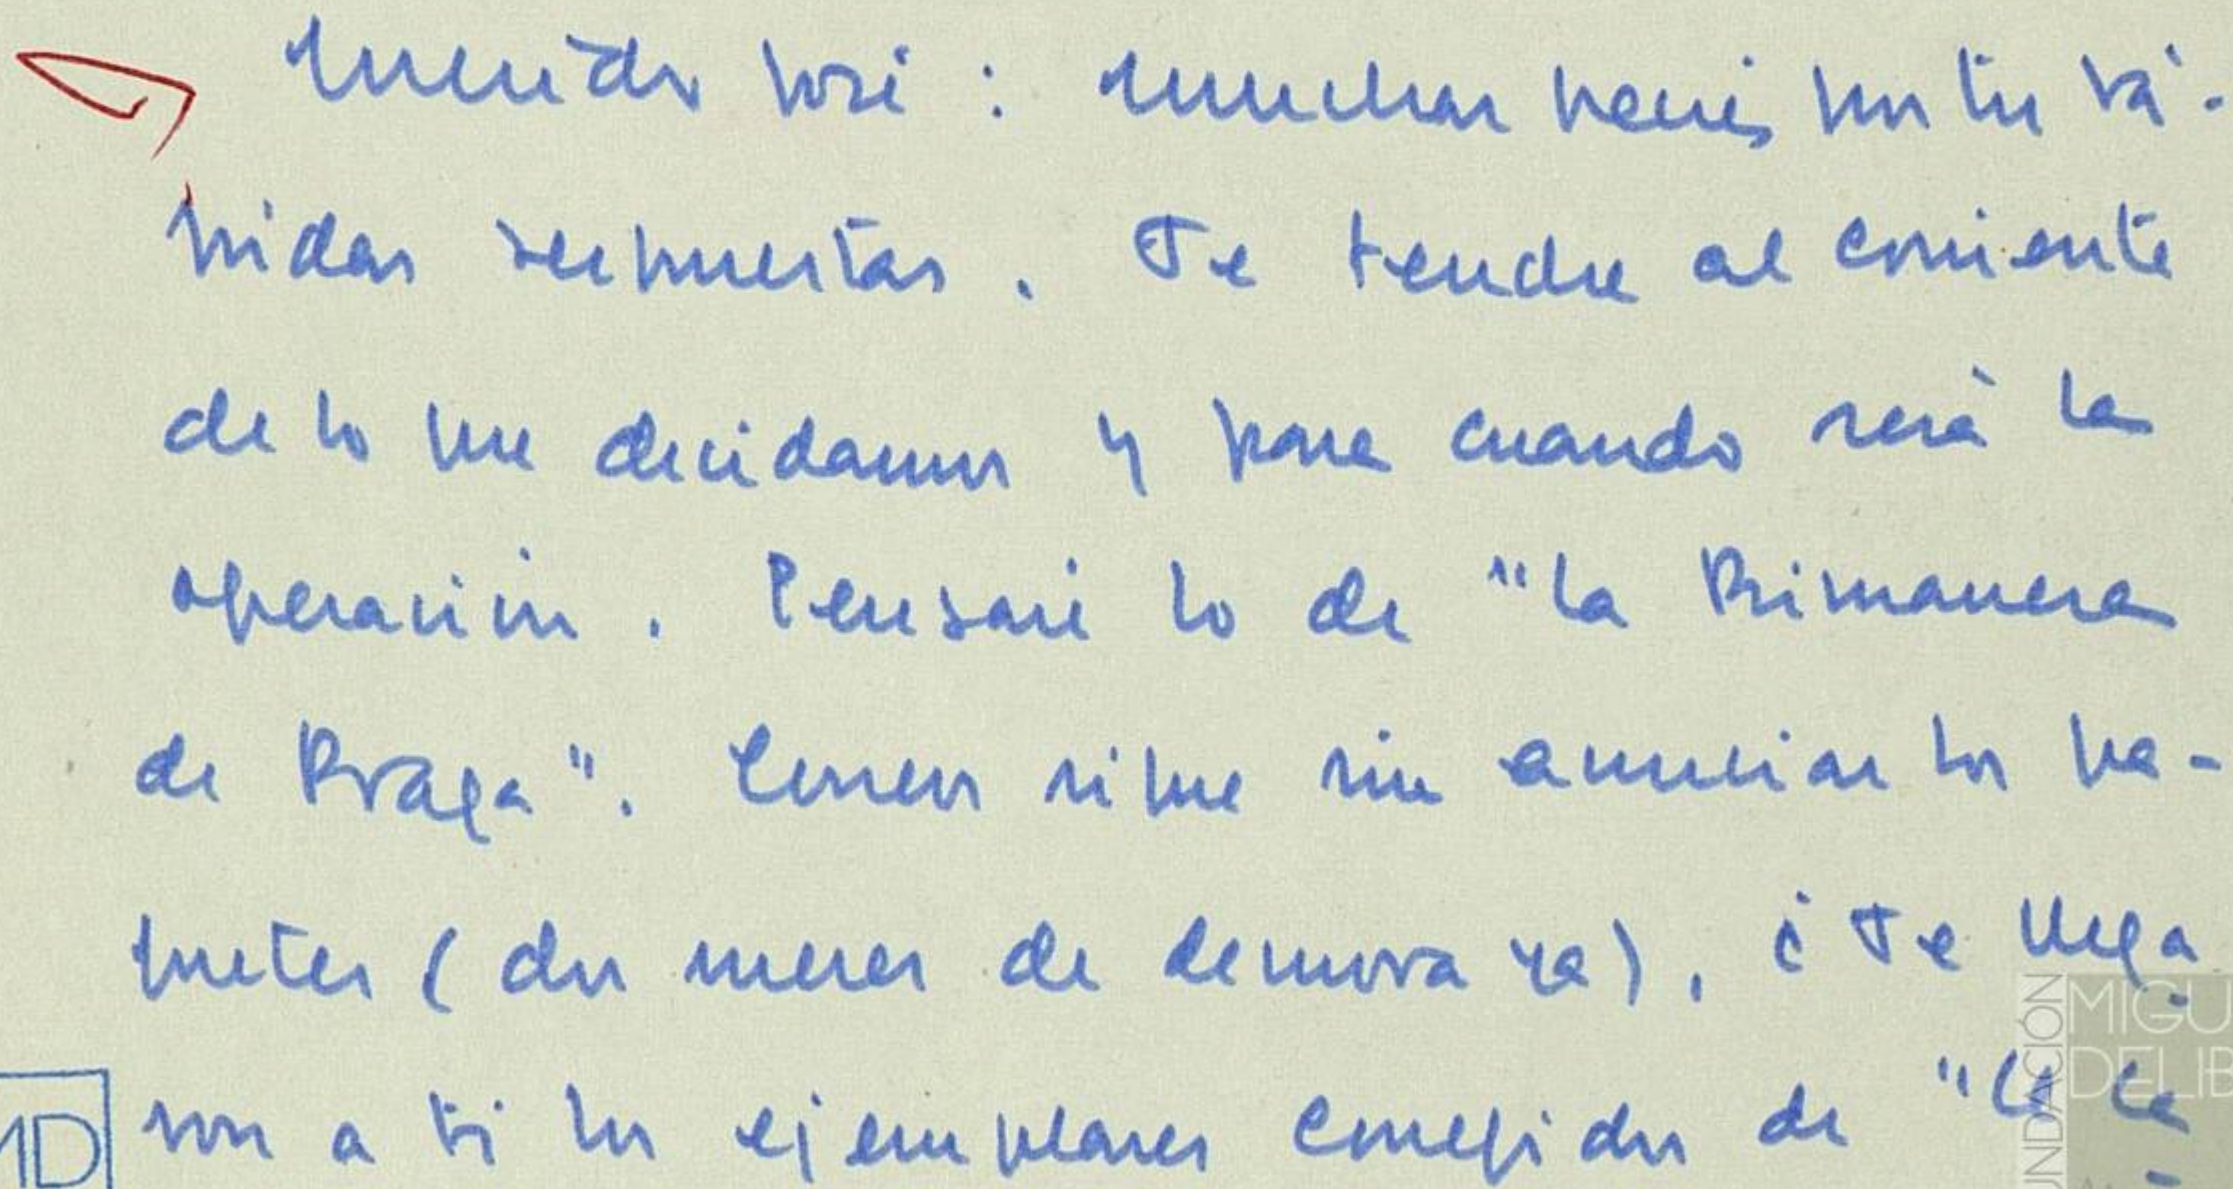 Querido Pepe: muchas gracias por tus rá-
pidas respuestas. Te tendré al corriente
de lo que decidamos y para cuando será la
operación. Pensaré lo de "La Primavera
de Praga". Correos sigue sin anunciar los pa-
quetes (dos meses de demora ya). ¿Te llega
ron a ti los ejemplares corregidos de "La ca
FUNDACIÓN
MIGU
DELIB
MD